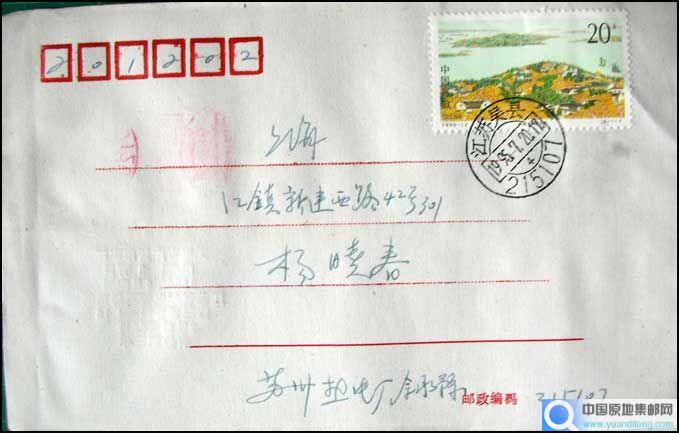 201202
20分
中国邮政
CHINA
江苏吴县
1995.7.20.18
4
215107
上海
江镇新建西路42号301
杨晓春
苏州热电厂
邮政编码 215107
中国原地集邮网
www.yuandifeng.com